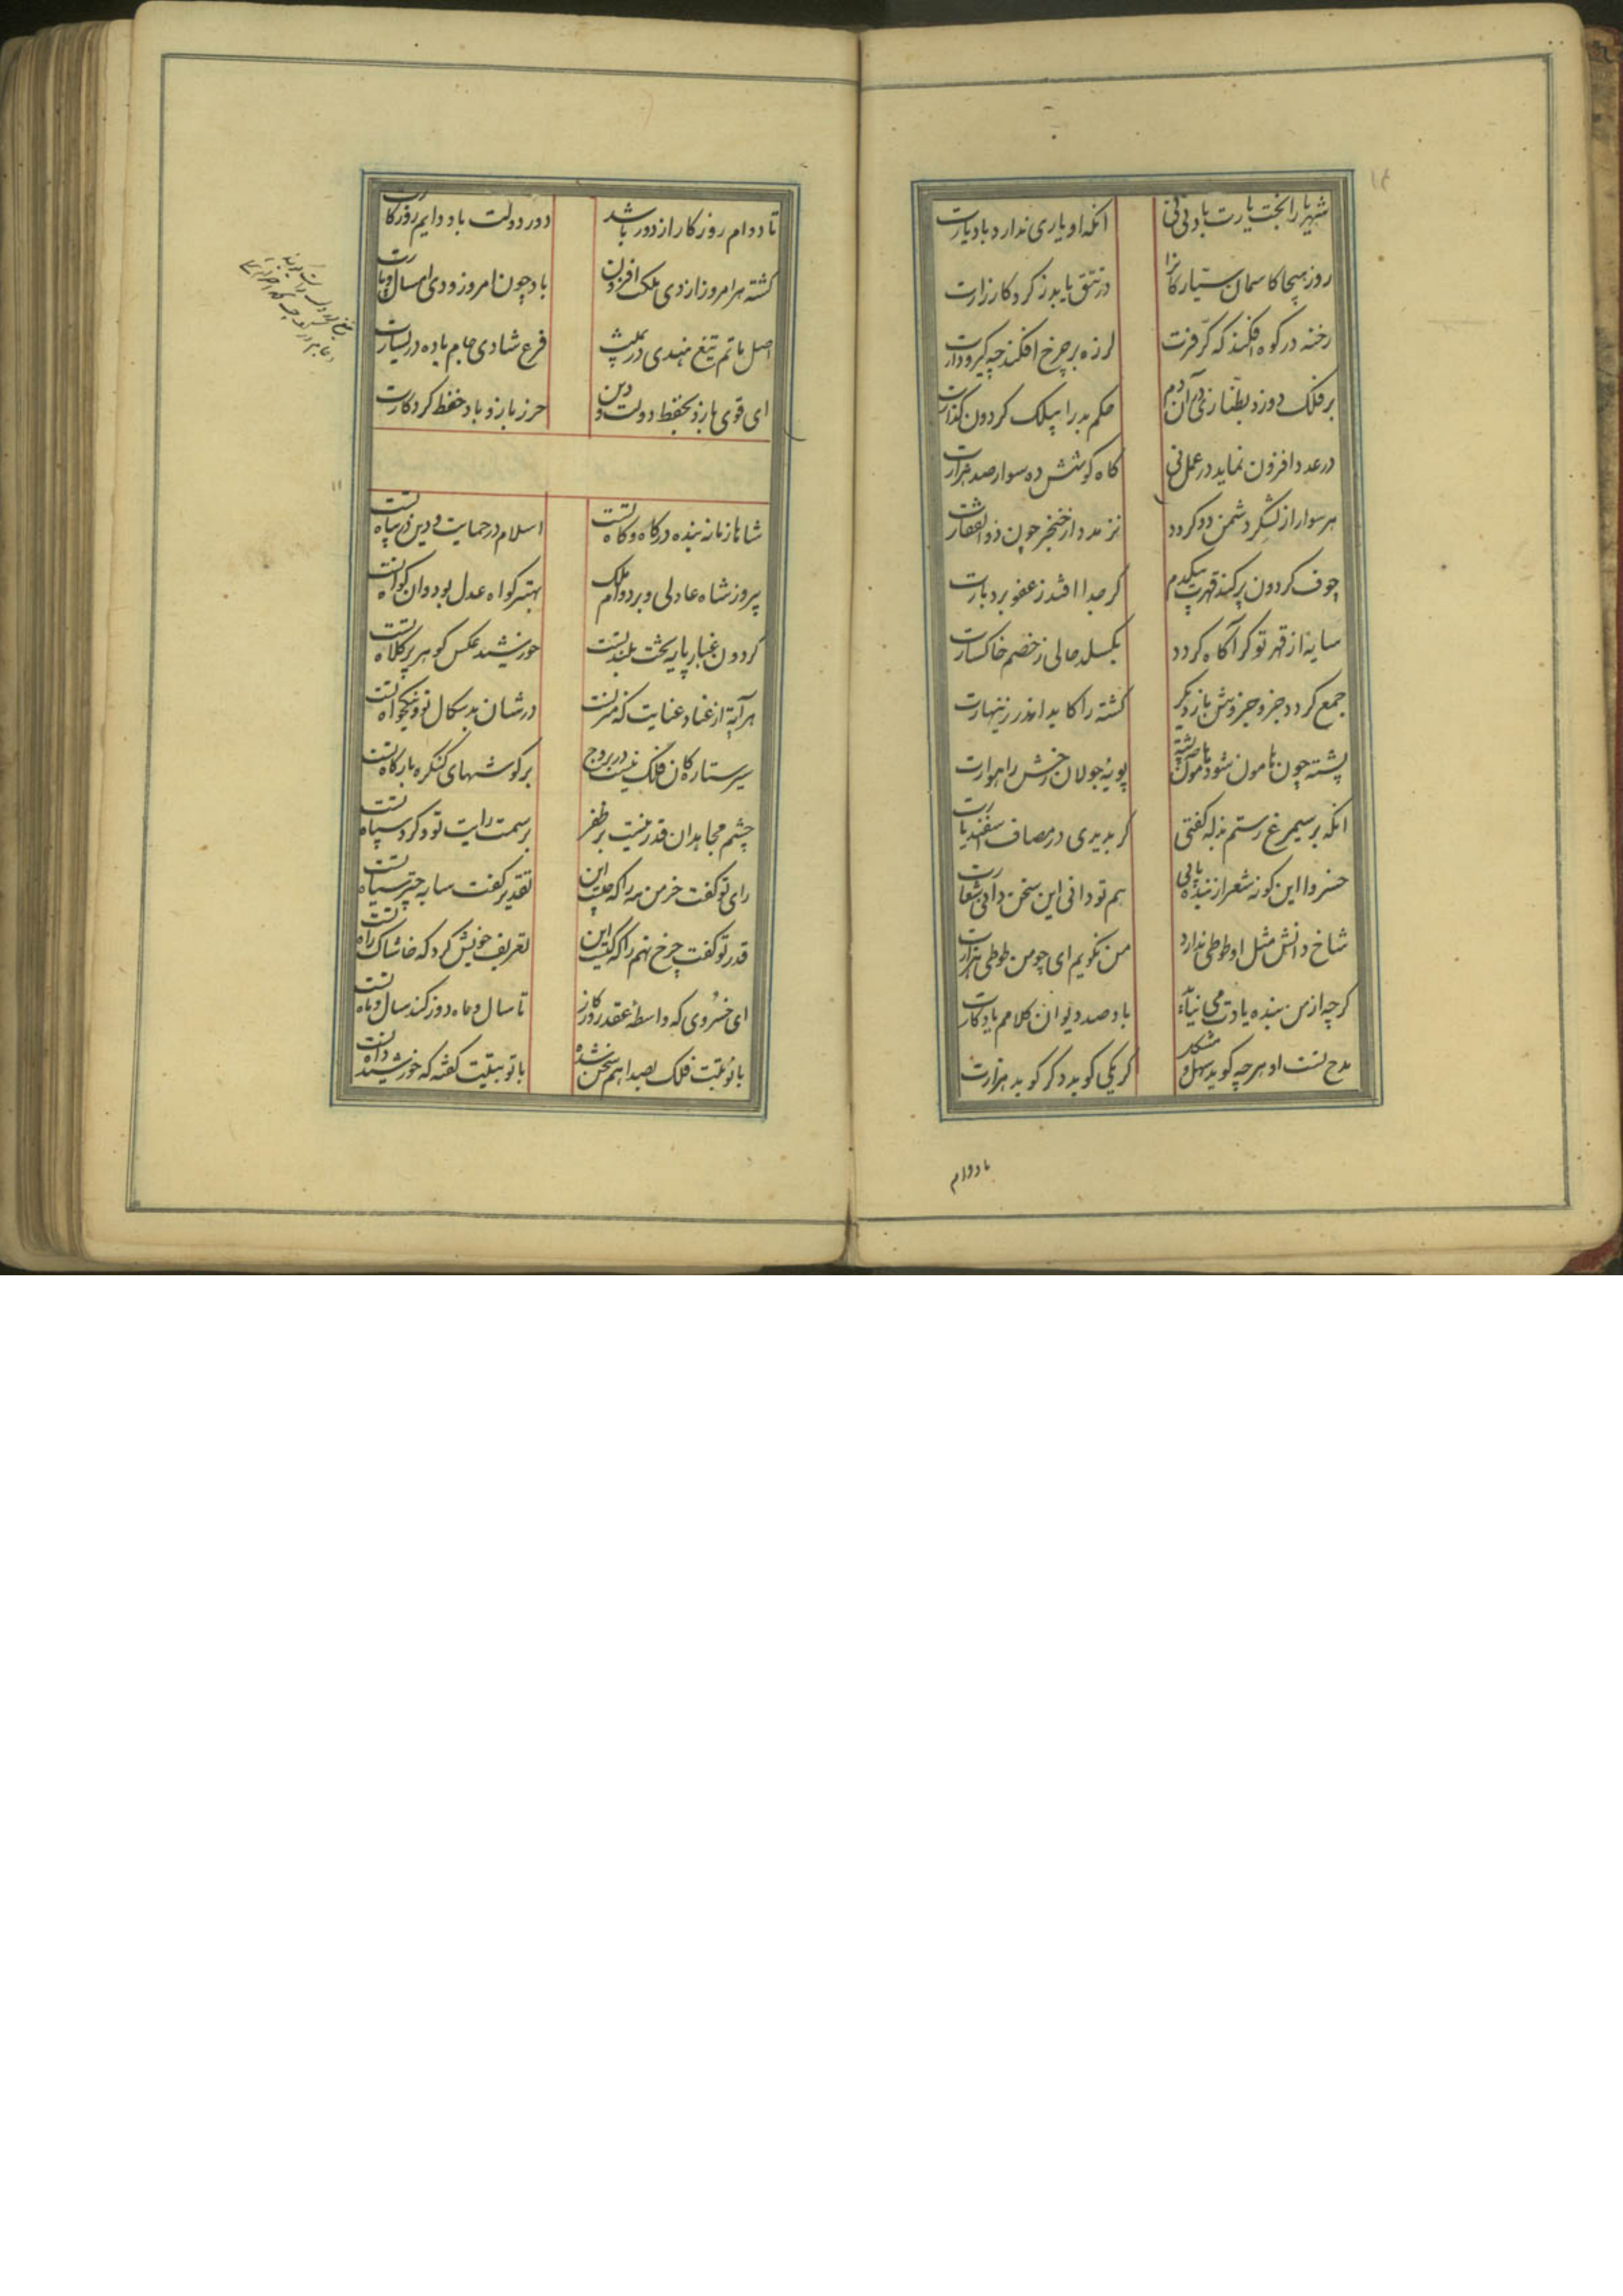 شهریارا بخت یارت باد نی نی
آنکه او یاری ندارد باد یارت
روز هیجا کاسمان سیارکانرا
در تتق یابد ز کرد کارزارت
رخنه در کوه افکند که کر و فرت
لرزه بر چرخ افکند چه کیرودارت
بر فلک دوزد بطنازی دم آن دم
حکم بد را بیلک کردون کذارت
در عدد افزون نماید در عمل نی
کاه کوشش ده سوار صد هزارت
هر سوار از لشکر دشمن دو کردد
نز مدد از خنجر چون ذوالفقارت
جوف کردون پر کند قهرت بیکدم
کر جدا افتد ز عفو بردبارت
سایه از قهر تو کر آکاه کردد
بکسلد حالی ز خصم خاکسارت
جمع کردد جزو جزوش باز دیکر
کشته را کاید اندر زینهارت
پشته چون هامون شود هامون پشته
پویهٔ جولان رخش راهوارت
آنکه بر سیمرغ رستم بذله کفتی
کر بدیدی در مصاف اسفندیارت
خسروا این کونه شعر از بنده یابی
هم تو دانی این سخن دانی شعارت
شاخ دانش مثل او طوطی ندارد
من نکویم ای چو من طوطی هزارت
کرچه از من بنده یادت می نیاید
باد صد دیوان کلامم یادکارت
مدح تست او هرچه کوید سهل و مشکل
کر یکی کوید دکر کوید هزارت
تا دوام
تا دوام روزکار از دور باشد
دور دولت باد و ایم روزکارت
کشته هر امروز از دی ملکت افزون
باد چون امروز و دی امسال و پارت
اصل ماتم تیغ هندی در یمینت
فرع شادی جام باده در یسارت
ای قوی بازو بحفظ دولت و دین
حرز بازو باد حفظ کردکارت
شاها زمانه بنده درکاه و کاه تست
اسلام در حمایت و دین در پناه تست
پیروز شاه عادلی و بر دوام ملک
بهتر کواه عدل بود و آن کواه تست
کردون غبار پایه تخت بلند تست
خورشید عکس کوهر پر کلاه تست
هر آیة از عنا و عنایت که منزلست
در شان بدسکال تو و نیکخواه تست
سیر ستارکان فلک نیست در بروج
بر کوشهای کنکره بارکاه تست
چشم مجاهدان قدر نیست بر ظفر
بر سمت رایت تو و کرد سپاه تست
رای تو کفت خرمن مه را که چیست این
تقدیر کفت سایه چتر سیاه تست
قدر تو کفت چرخ نهم را که کیست این
تعریف خویش کرد که خاشاک راه تست
ای خسروی که واسطهٔ عقد روزکار
تا سال و ماه دور کند سال و ماه تست
با نوبتت فلک بصدا هم سخن شده
با تو بتبیت کفته که خورشید داه تست